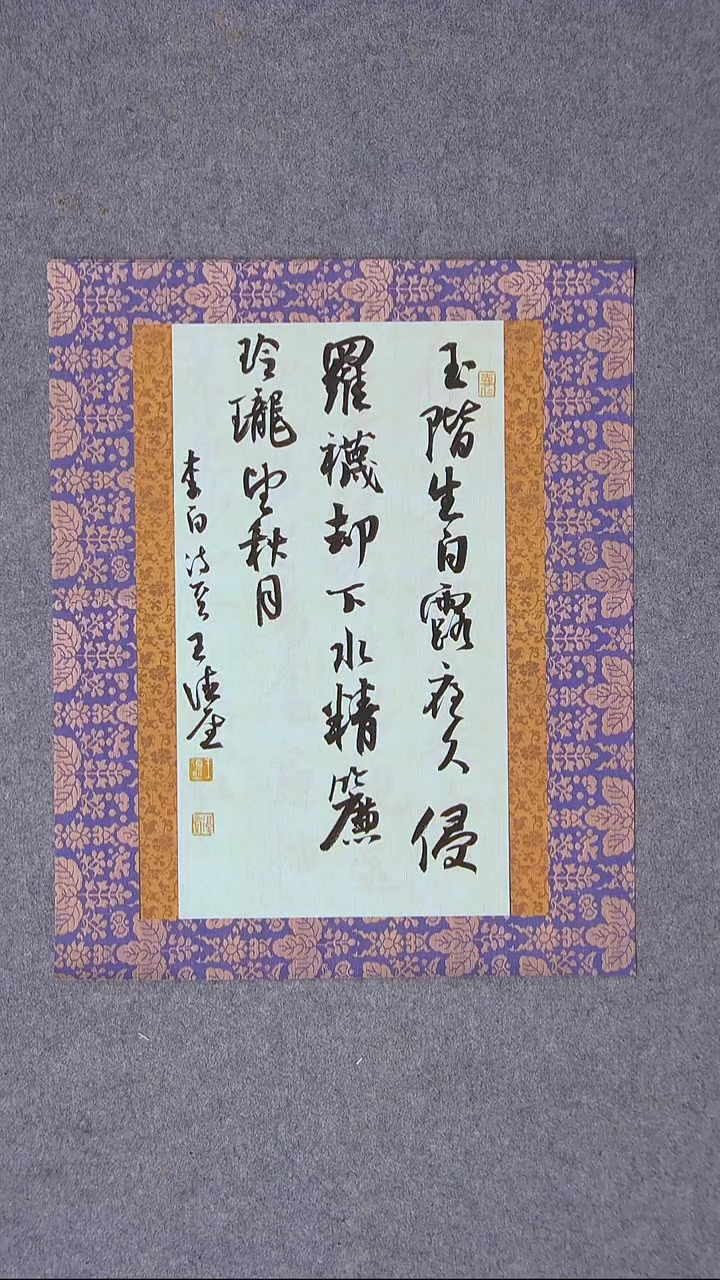 玉階生白露夜久侵
羅襪却下水精簾
玲瓏望秋月
李白詩 王